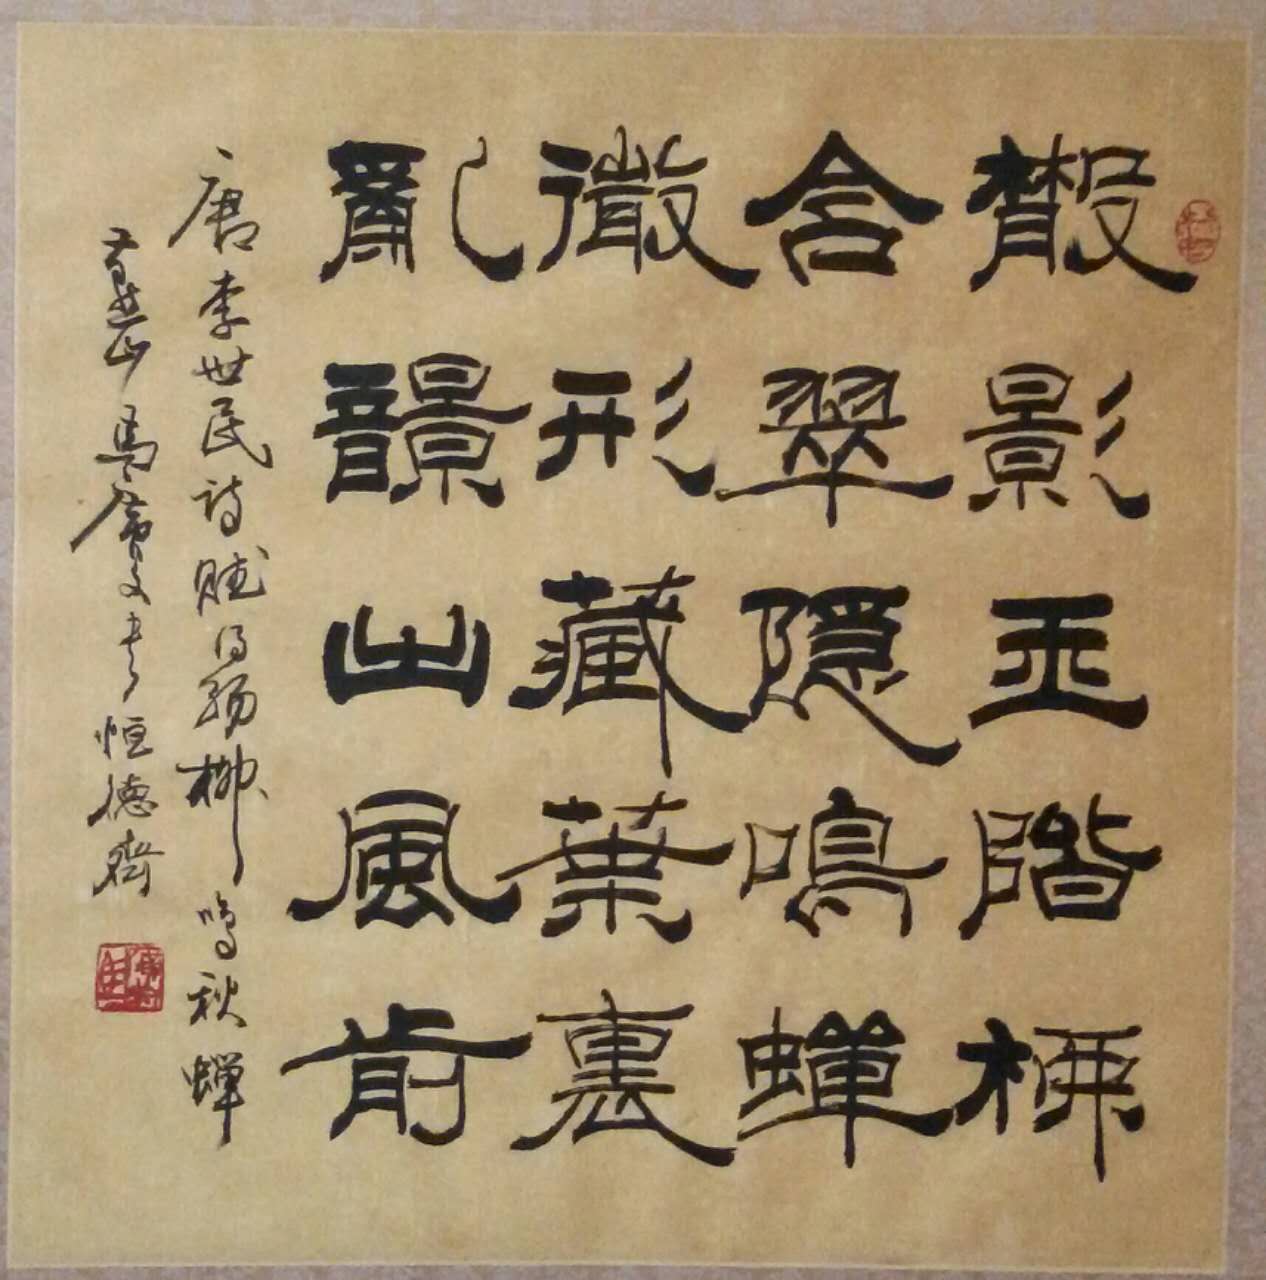 散影玉階柳
含翠隱鳴蟬
微形藏葉裏
亂響出風前
唐李世民诗赋得弱柳鸣秋蟬
燕山馬廣文书恒德齋